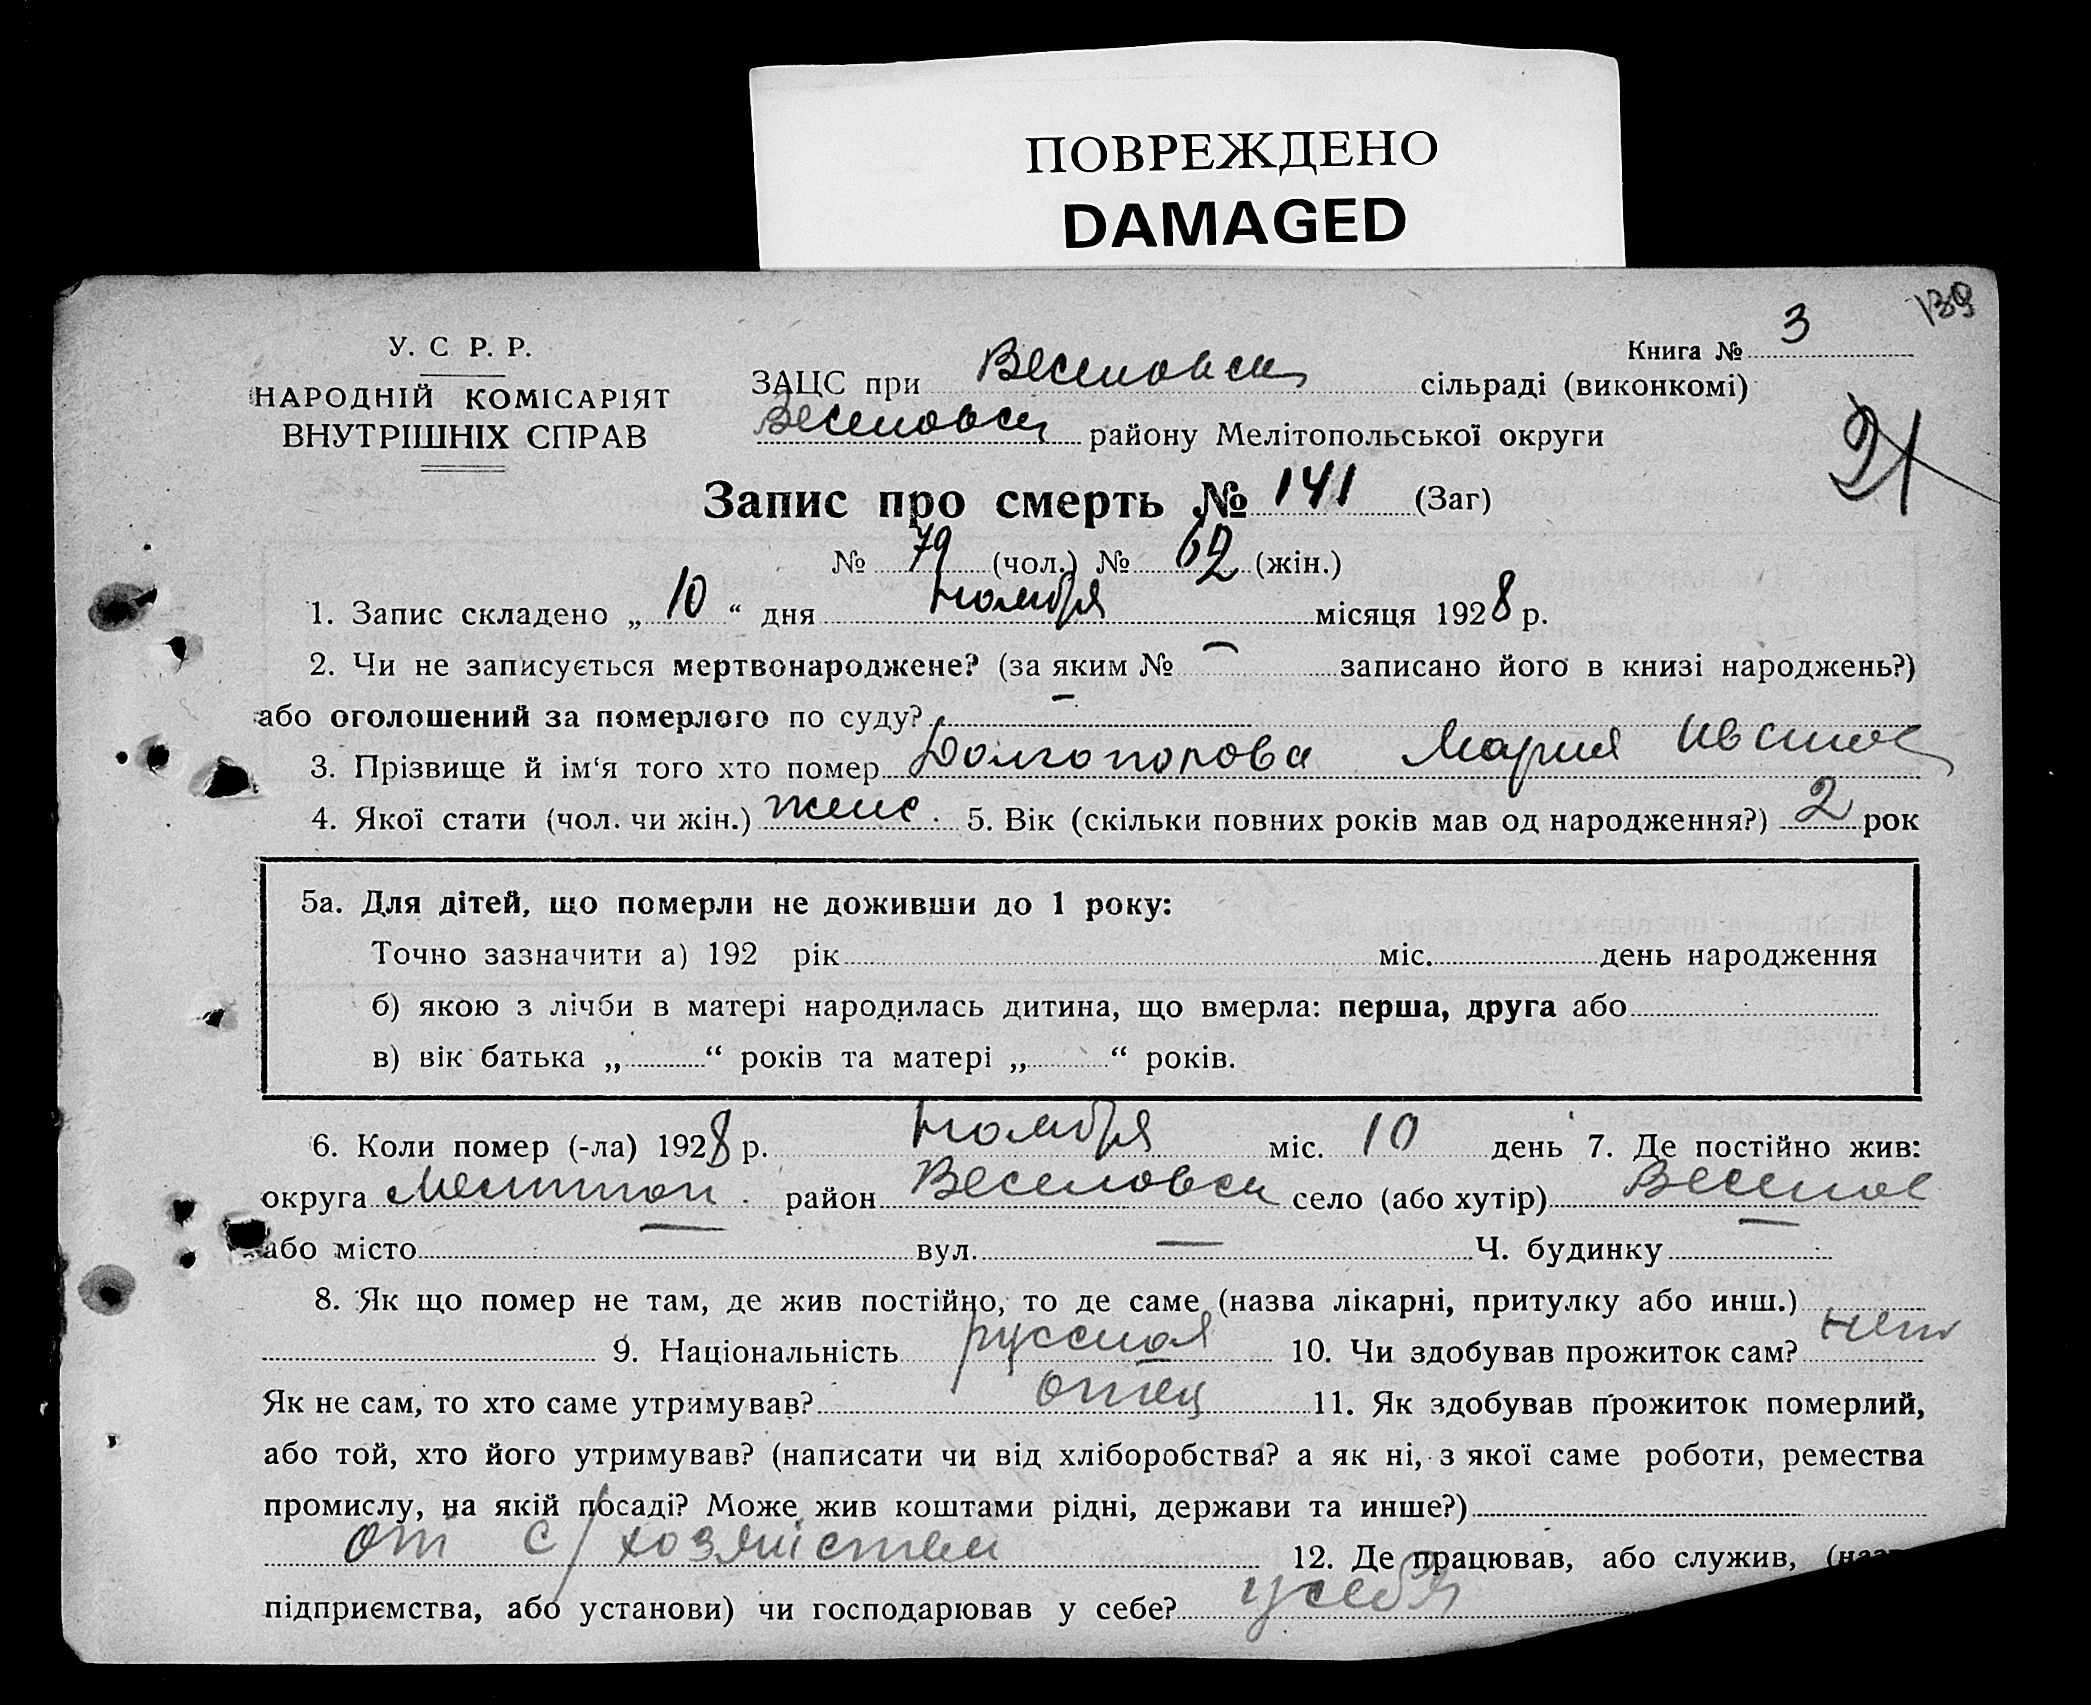 ПОВРЕЖДЕНО
DAMAGED
139
У. С Р. Р.
НАРОДНІЙ КОМІСАРІЯТ
ВНУТРІШНІХ СПРАВ
Книга № 3
ЗАЦС при Веселовск сільраді (виконкомі)
Веселовск району Мелітопольської округи
21
Запис про смерть № 141 (Заг)
№ 79 (чол.) № 62 (жін.)
1. Запис складено „ 10 “ дня ноября місяця 1928 р.
2. Чи не записується мертвонароджене? (за яким № — записано його в книзі народжень?)
або оголошений за померлого по суду? —
3. Прізвище й ім‘я того хто помер Долгополова Мария
4. Якої стати (чол. чи жін.) женс. 5. Вік (скільки повних років мав од народження?) 2 рок
5а. Для дітей, що померли не доживши до 1 року:
Точно зазначити а) 192 рік міс. день народження
б) якою з лічби в матері народилась дитина, що вмерла: перша, друга або
в) вік батька „ “ років та матері „ “ років.
6. Коли помер (-ла) 1928 р. ноября міс. 10 день 7. Де постійно жив:
округа Мелитоп. район Веселовск село (або хутір) Веселое
або місто — вул. — Ч. будинку —
8. Як що помер не там, де жив постійно, то де саме (назва лікарні, притулку або инш.)
9. Національність русская 10. Чи здобував прожиток сам? нет
Як не сам, то хто саме утримував? отец 11. Як здобував прожиток померлий,
або той, хто його утримував? (написати чи від хліборобства? а як ні, з якої саме роботи, ремества
промислу, на якій посаді? Може жив коштами рідні, держави та инше?)
от с/хозяйства 12. Де працював, або служив, (назв
підприємства, або установи) чи господарював у себе? у себя